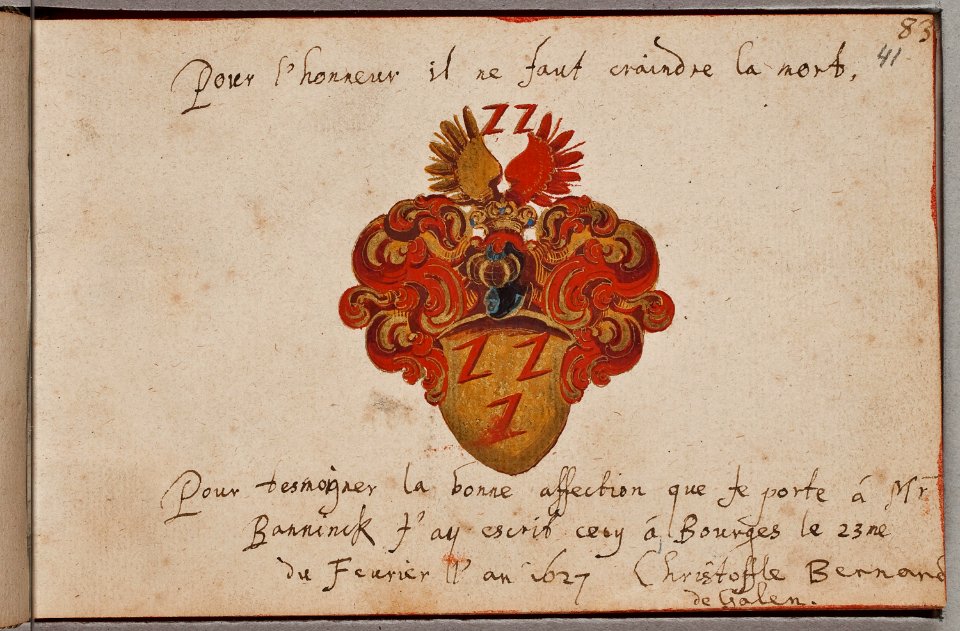 83
41
Pour l'honneur il ne faut craindre la mort,
Pour tesmoigner la bonne affection que Je porte á Mr
Banninck J'ay escrit cecy á Bourges le 23me
du Feurier l'an 1627 Christoffle Bernard
de Galen.